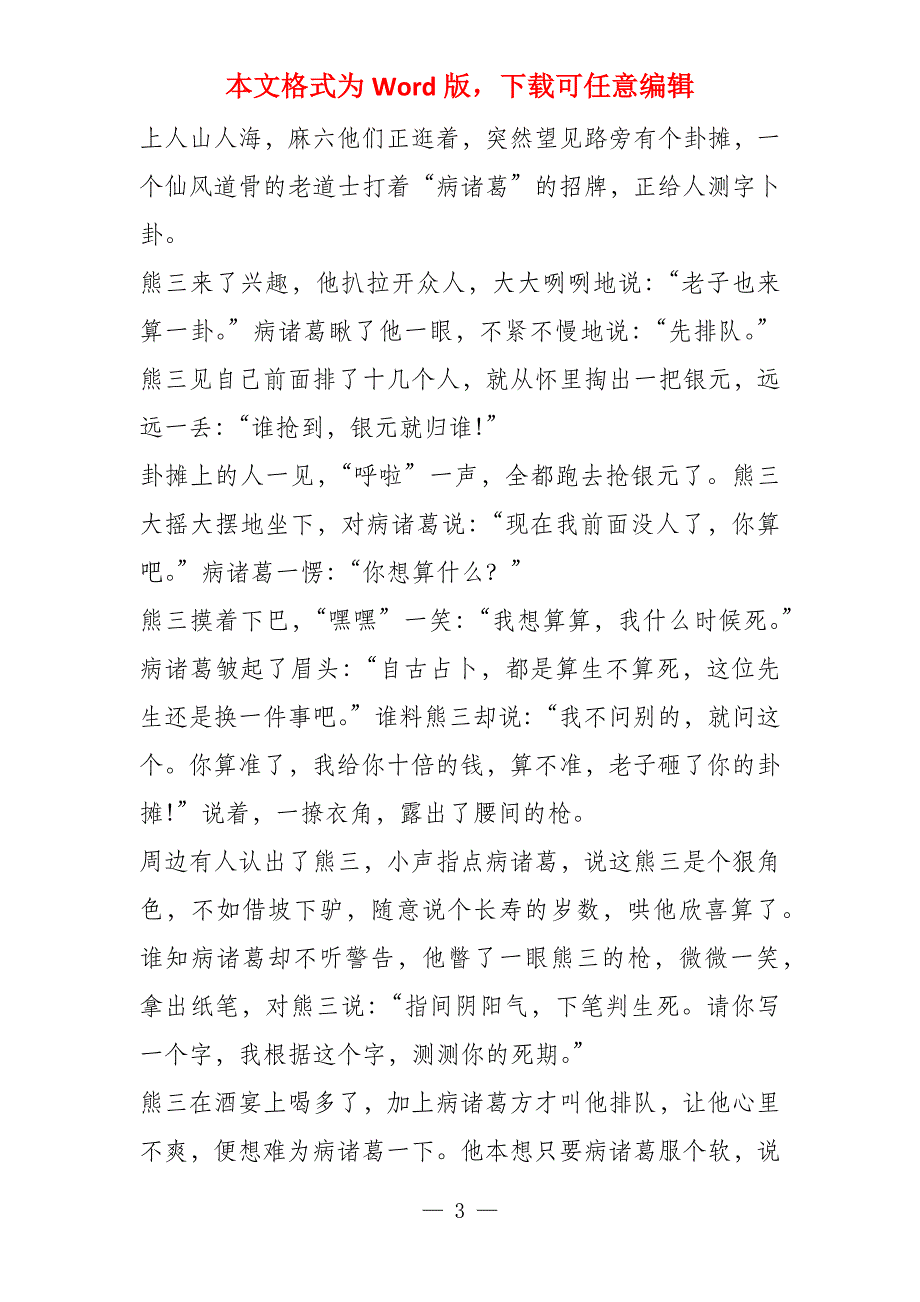 本文格式为 Word 版，下载可任意编辑
上人山人海，麻六他们正逛着，突然望见路旁有个卦摊，一
个仙风道骨的老道士打着“病诸葛”的招牌，正给人测字卜
卦。
熊三来了兴趣，他扒拉开众人，大大咧咧地说：“老子也来
算一卦。”病诸葛瞅了他一眼，不紧不慢地说：“先排队。”
熊三见自己前面排了十几个人，就从怀里掏出一把银元，远
远一丢：“谁抢到，银元就归谁！”
卦摊上的人一见，“呼啦”一声，全都跑去抢银元了。熊三
大摇大摆地坐下，对病诸葛说：“现在我前面没人了，你算
吧。”病诸葛一愣：“你想算什么？”
熊三摸着下巴，“嘿嘿”一笑：“我想算算，我什么时候死。”
病诸葛皱起了眉头：“自古占卜，都是算生不算死，这位先
生还是换一件事吧。”谁料熊三却说：“我不问别的，就问这
个。你算准了，我给你十倍的钱，算不准，老子砸了你的卦
摊！”说着，一撩衣角，露出了腰间的枪。
周边有人认出了熊三，小声指点病诸葛，说这熊三是个狠角
色，不如借坡下驴，随意说个长寿的岁数，哄他欣喜算了。
谁知病诸葛却不听警告，他瞥了一眼熊三的枪，微微一笑，
拿出纸笔，对熊三说：“指间阴阳气，下笔判生死。请你写
一个字，我根据这个字，测测你的死期。”
熊三在酒宴上喝多了，加上病诸葛方才叫他排队，让他心里
不爽，便想难为病诸葛一下。他本想只要病诸葛服个软，说
— 3 —